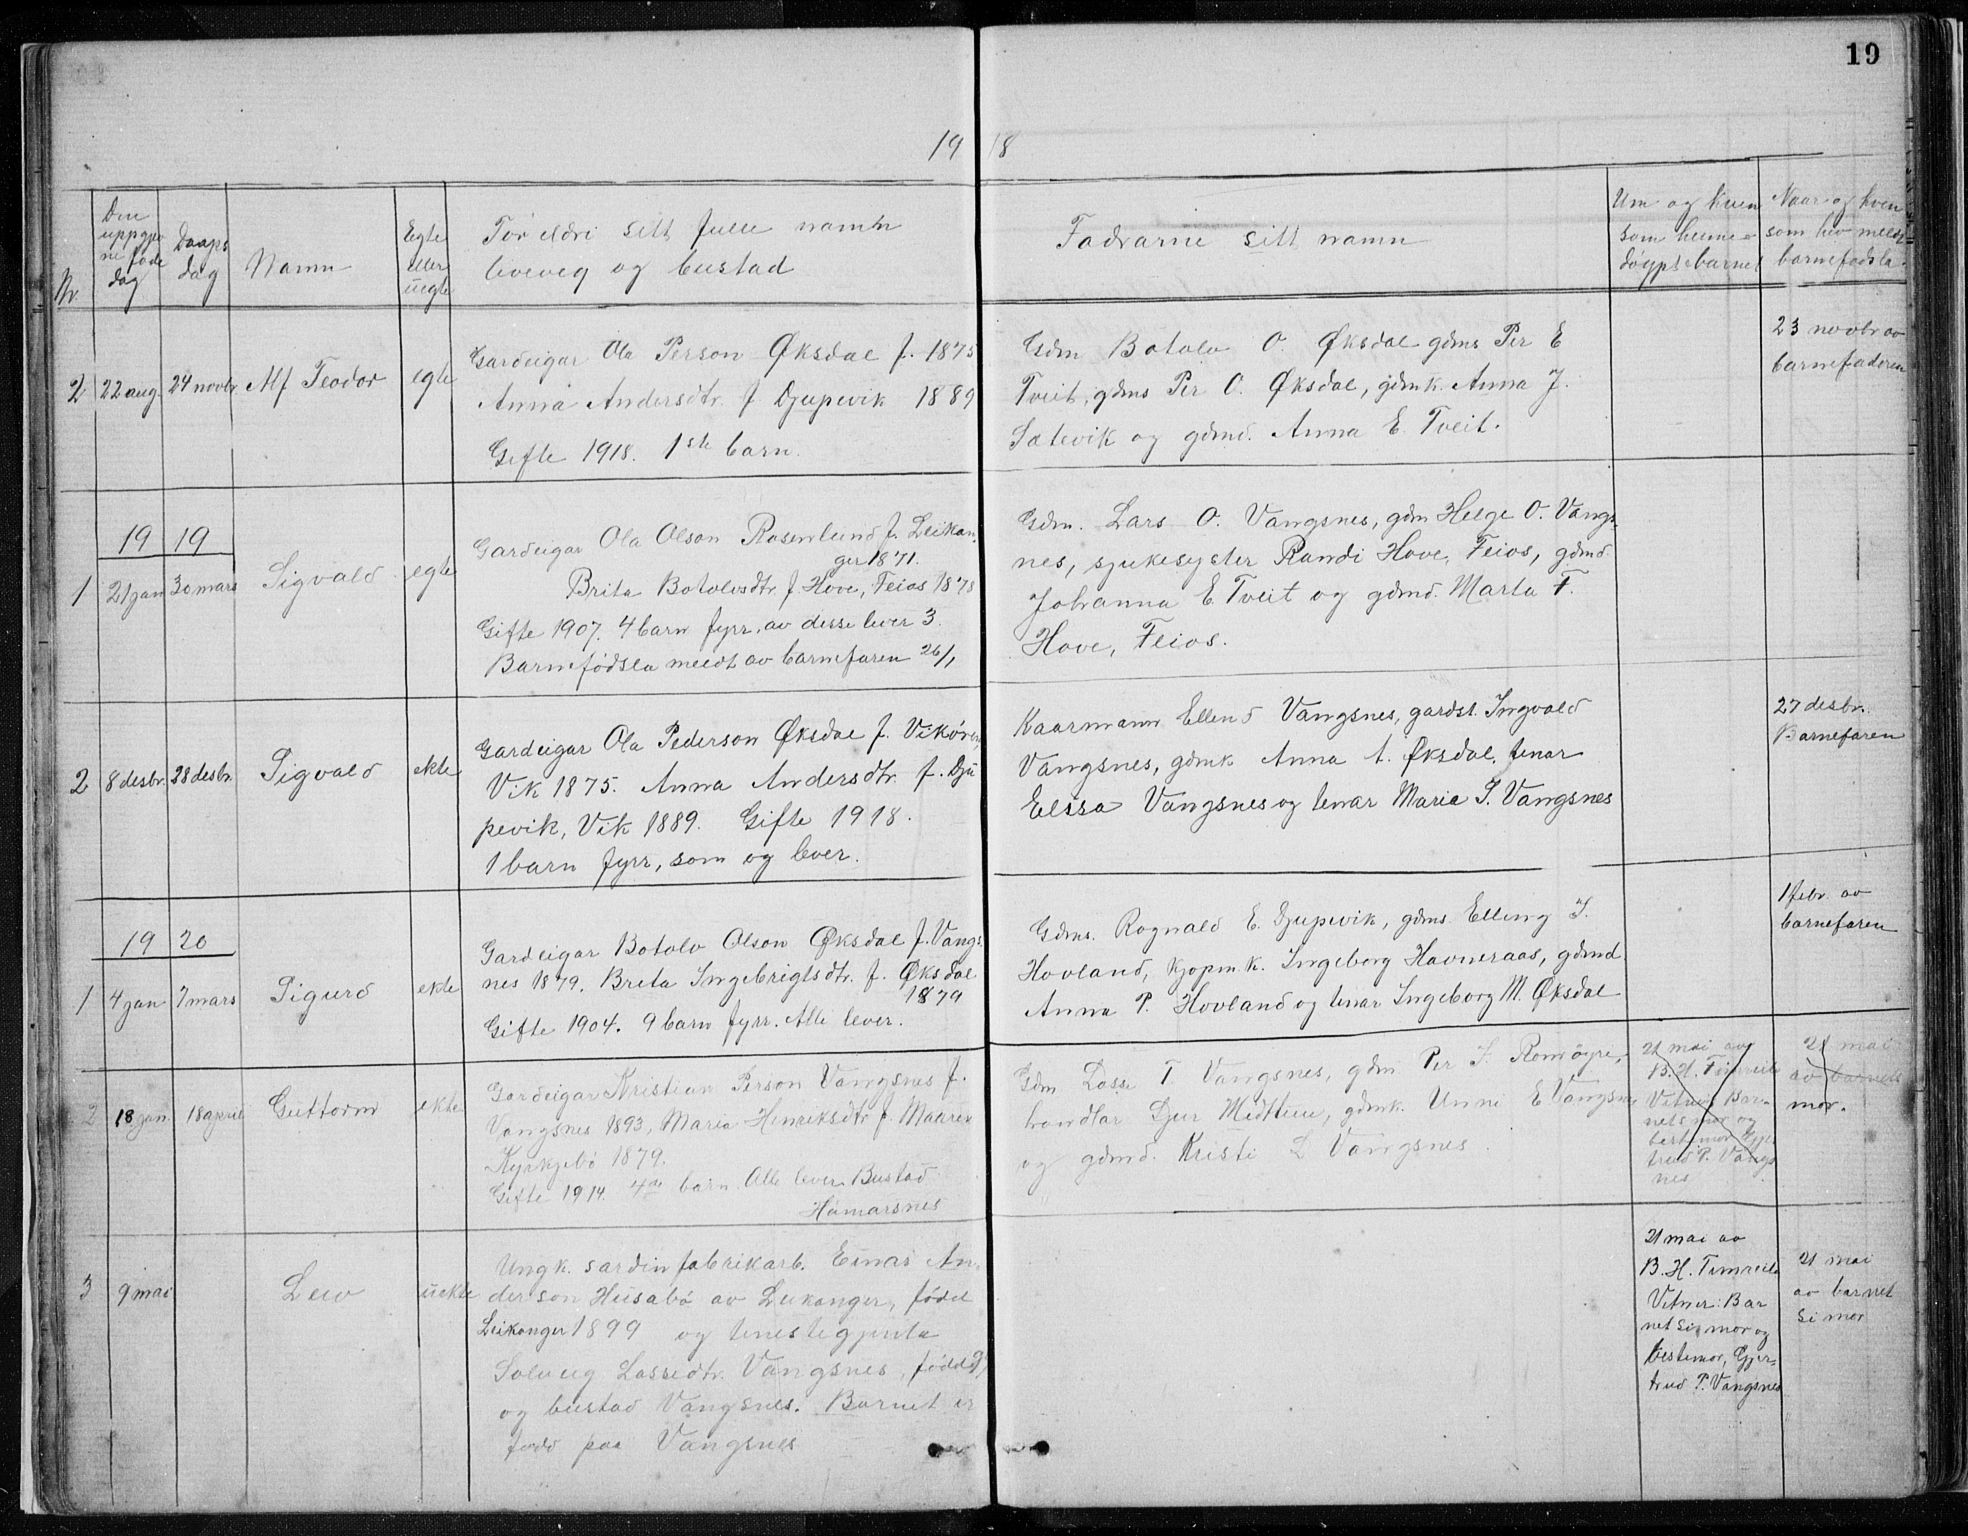 19
19 18
Nr.
Den uppgjevne fødedag
Daapsdag
Namn
Egte eller uegte
Foreldri sitt fulle namn
liveveg og bustad
Fadrarne sitt namn
Um og kven som heimedøypte barnet
Naar og kven som hev meldt barnefødsla.
2 22 aug. 24 novbr. Alf Teodor egte
Gardeigar Ola Person Øksdal f. 1875
Anna Andersdtr. f. Djupevik 1889
Gifte 1918. 1ste barn.
Gdm Botolv O. Øksdal gdms Per E
Tveit, gdms Per O. Øksdal, gdmk. Anna J.
Sætevik og gdmd. Anna E. Tveit.
23 novbr av
barnefaderen
19 19
1 21 jan 30 mars Sigvald egte
Gardeigar Ola Olson Rosenlund f. Leikan-
ger 1871.
Brita Botolvsdtr. f. Hove, Feios 1878
Gifte 1907. 4 barn fyrr, av desse lever 3.
Barnefødsla meldt av barnefaren 26/1
Gdm. Lars O. Vangsnes, gdm Helge O. Vangs-
nes, sjukesyster Randi Hove, Feios, gdmd
Johanna E. Tveit og gdmd. Marta T.
Hove, Feios.
2 8 desbr. 28 desbr. Sigvald ekte
Gardeigar Ola Pederson Øksdal f. Vikøren,
Vik 1875. Anna Andersdtr. f. Dju
pevik, Vik 1889. Gifte 1918.
1 barn fyrr, som og lever.
Kaarmann Ellend Vangsnes, gardst. Ingvald
Vangsnes, gdmk Anna A. Øksdal, tenar
Elisa Vangsnes og tenar Maria S. Vangsnes
27 desbr.
Barnefaren
19 20
1 4 jan 7 mars Sigurd ekte
Gardeigar Botolv Olson Øksdal f. Vangs-
nes 1879. Brita Ingebrigtsdtr. f. Øksdal
1879
Gifte 1904. 9 barn fyrr. Alle lever.
Gdms. Rognald E. Djupevik, gdms. Elling J.
Hovland, kjøpm.k. Ingeborg Havneraas, gdmd
Anna P. Hovland og tenar Ingeborg M. Øksdal
1 febr. av
barnefaren
2 18 jan. 18 april Guttorm ekte
Gardeigar Kristian Person Vangsnes f.
Vangsnes 1893, Maria Henriksdtr f. Maaren
Kyrkjebø 1879.
Gifte 1914. 4de barn. Alle lever. Bustad
Hamarsnes
Gdm Lasse T. Vangsnes, gdm Per S. Romøyri,
handlar Djur Midttun, gdmk. Unni E Vangsnes
og gdmd. Kristi L Vangsnes.
21 mai av
B. H. Timreite
Vitner Bar-
nets mor og
bestemor Gjer
trud P. Vangs
nes
21 mai
av barnets
mor.
3 9 mai Leiv uekte
Ungk. sardinfabrikarb. Einar An-
derson Husabø av Leikanger, fødd
Leikanger 1899 og tenestegjenta
Solveig Lassedtr. Vangsnes, fødd
og bustad Vangsnes. Barnet er
fødd paa Vangsnes
21 mai av
B. H. Timreite
Vitner: Bar
net si mor og
bestemor, Gjer-
trud P. Vangsnes
21 mai
av barnet
si mor